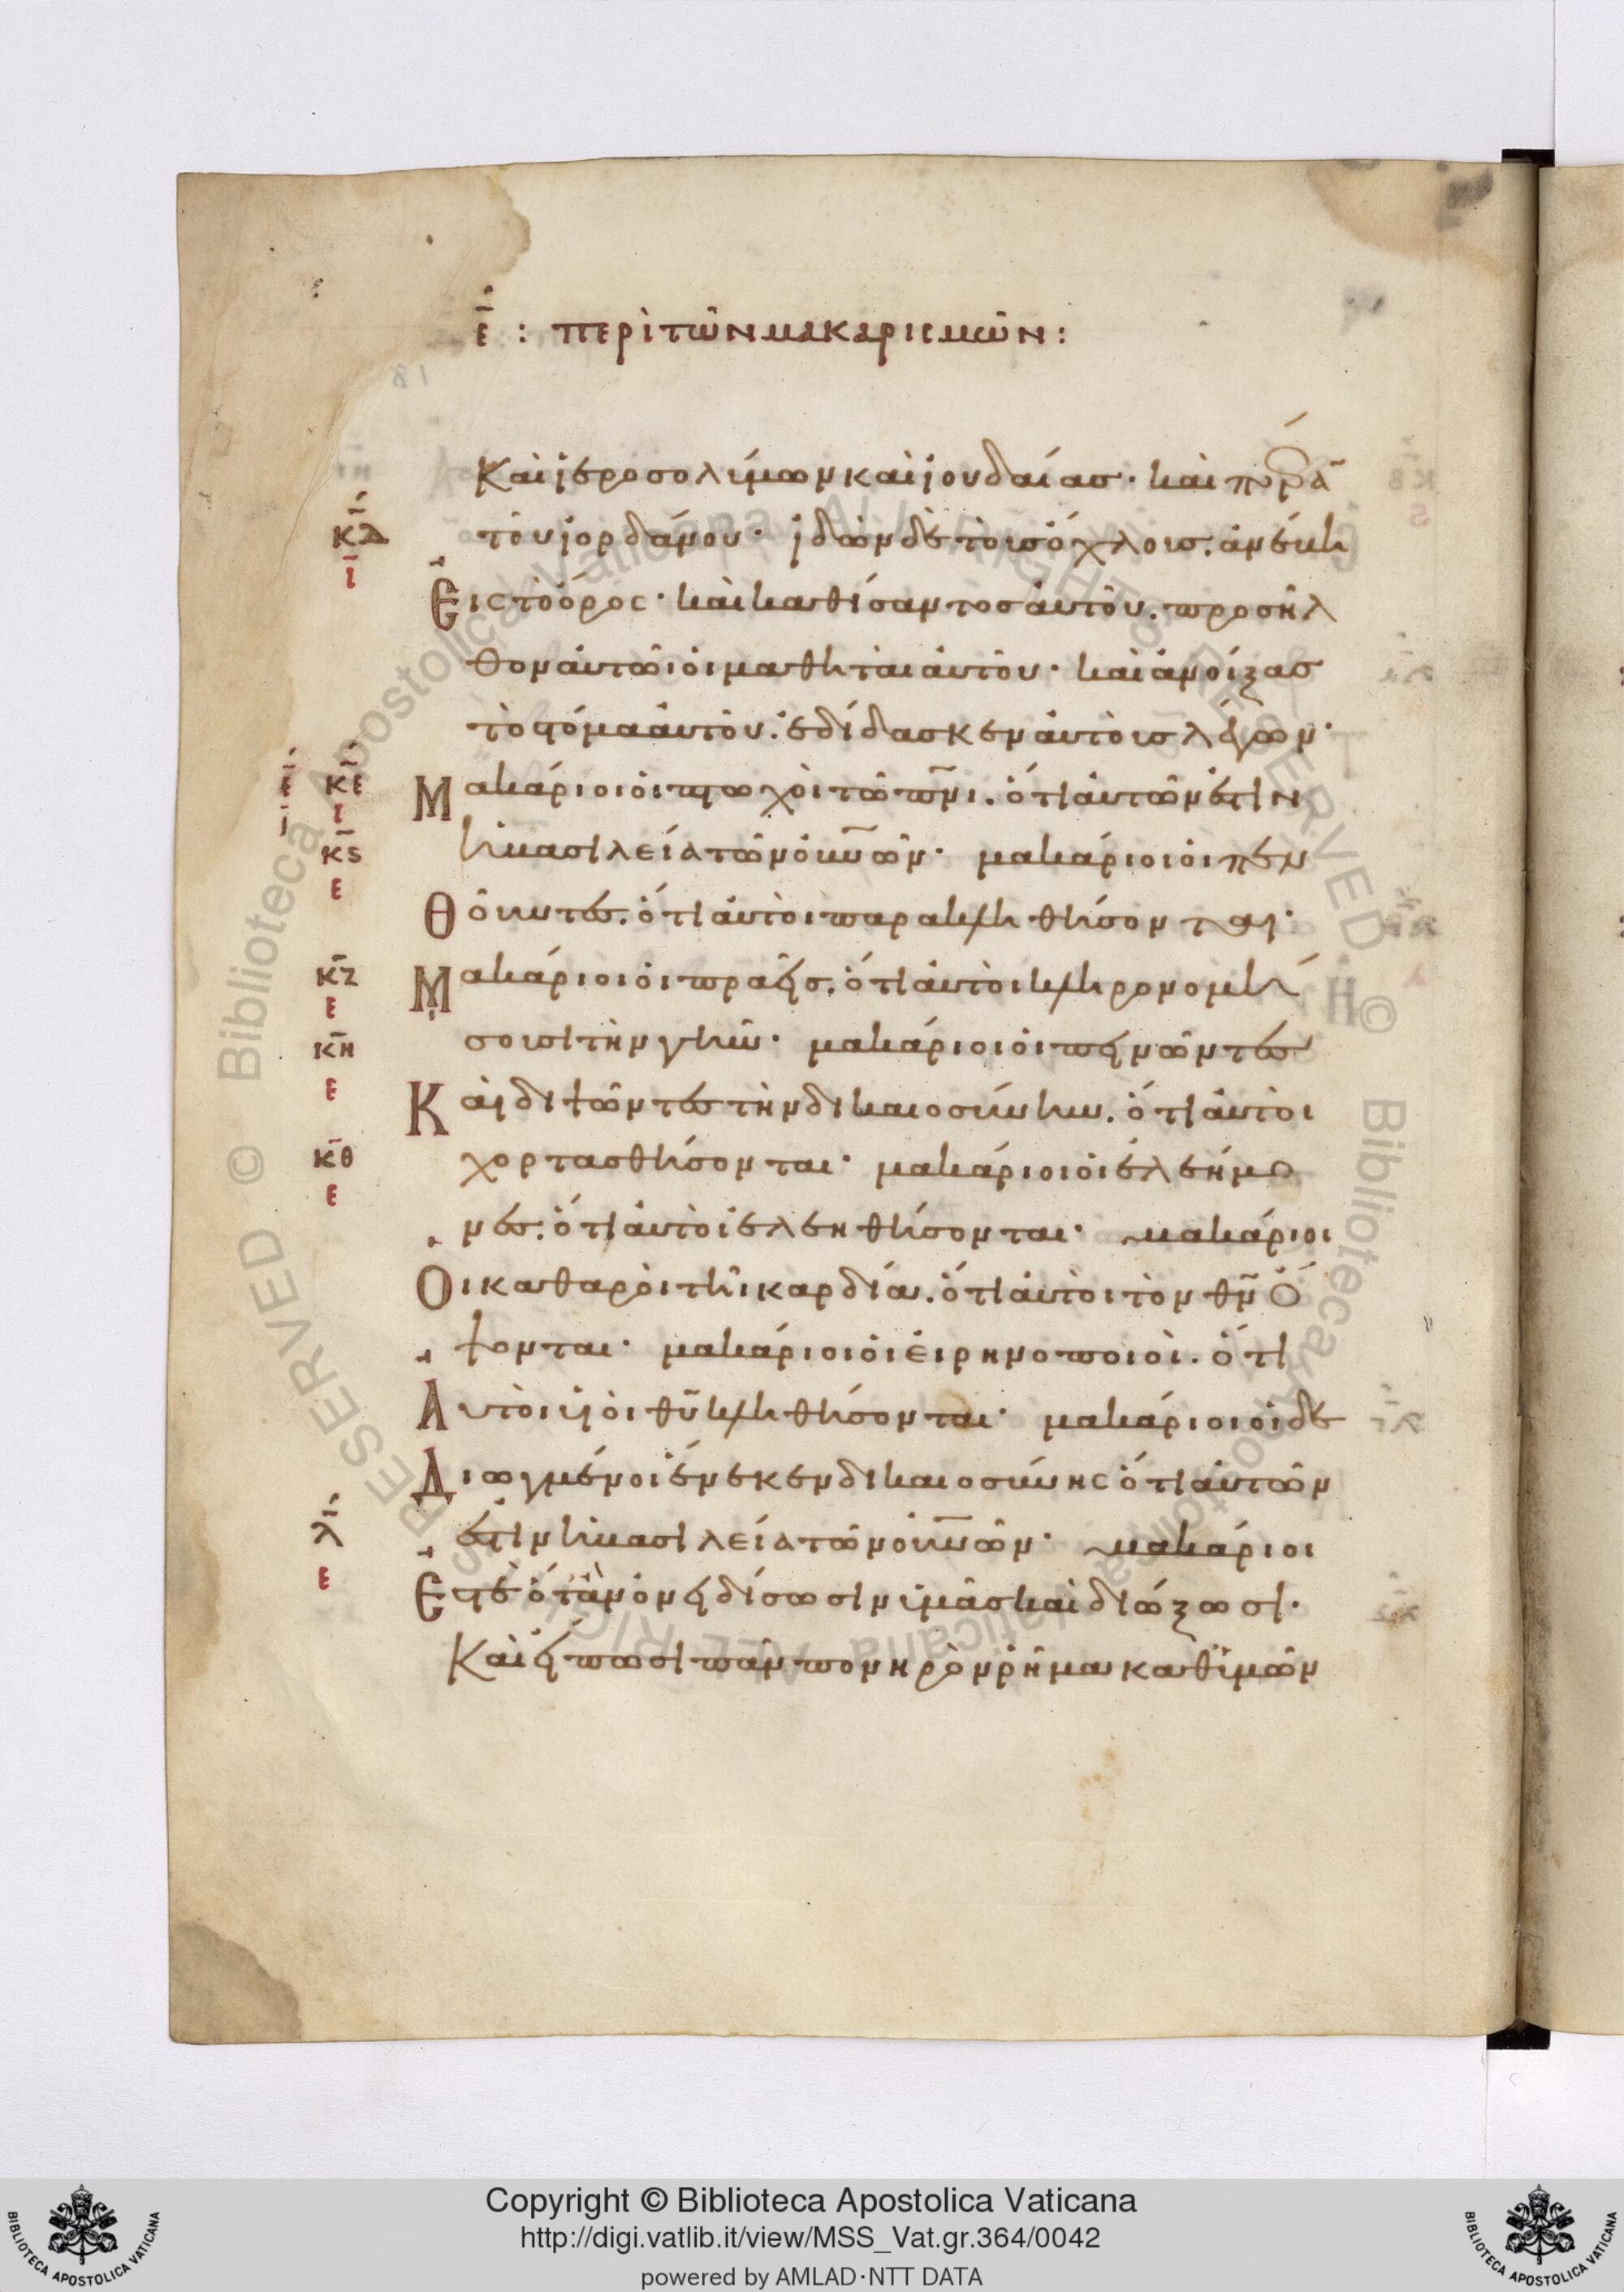 ε̄ : περὶ τῶν μακαρισμῶν :
Καὶ ἱεροσολύμων καὶ ἰουδαίας· καὶ πέρᾱ
κ̄δ τοῦ ἰορδάνου· ἰδὼν δὲ τοὺς ὄχλους. ἀνέβη
ῑ
Εἰς τὸ ὄρος· καὶ καθίσαντος αὐτοῦ. προσῆλ
θον αὐτῶι οἱ μαθηταὶ αὐτοῦ· καὶ ἀνοίξας
τὸ στόμα αὐτοῦ. ἐδίδασκεν αὐτοὺς λέγων·
ε̄ κ̄ε Μακάριοι οἱ πτωχοὶ τῶ π̅ν̅ι. ὅτι αὐτῶν ἐστὶν
ῑ
κ̄ς ἡ βασιλεία τῶν οὐ̅ν̅ῶν· μακάριοι οἱ πεν
ε
Θοῦντες. ὅτι αὐτοὶ παρακληθήσονται·
κ̄ζ Μακάριοι οἱ πραεῖς. ὅτι αὐτοὶ κληρονομή
ε
κ̄η σουσι τὴν γῆν· μακάριοι οἱ πεινῶντες
ε
Καὶ διψῶντες τὴν δικαιοσύνην. ὅτι αὐτοὶ
κ̄θ χορτασθήσονται· μακάριοι οἱ ἐλεήμο
ε
νες. ὅτι αὐτοὶ ἐλεηθήσονται· μακάριοι
Οἱ καθαροὶ τῆι καρδία. ὅτι αὐτοὶ τὸν θ̅ν̅ ὄ
ψονται· μακάριοι οἱ εἰρηνοποιοὶ. ὅτι
Αὐτοὶ υἱοὶ θ̅υ̅ κληθήσονται· μακάριοι οἱ δε
Διωγμένοι ἕνεκεν δικαιοσύνης ὅτι αὐτῶν
λ̄ ἐστὶν ἡ βασιλεία τῶν οὐ̅ν̅ῶν· μακάριοι
ε
Ἐστὲ ὅτὰν ὀνειδίσωσιν ὑμᾶς καὶ διώξωσι·
Καὶ εἴπωσι πᾶν πονηρὸν ῥῆμα καθ ὑμῶν
Copyright © Biblioteca Apostolica Vaticana
http://digi.vatlib.it/view/MSS_Vat.gr.364/0042
powered by AMLAD·NTT DATA
BIBLIOTECA APOSTOLICA VATICANA
BIBLIOTECA APOSTOLICA VATICANA